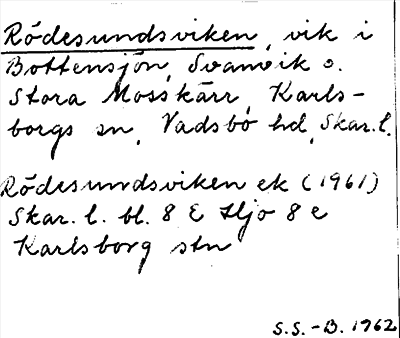 Rödesundsviken, vik i
Bottensjön, Svanvik o.
Stora Mosskärr, Karls-
borgs sn, Vadsbo hd, Skar.l.
Rödesundsviken ek (1961)
Skar. l. bl. 8 E Hjo 8 e
Karlsborg stn
S.S.-B. 1962